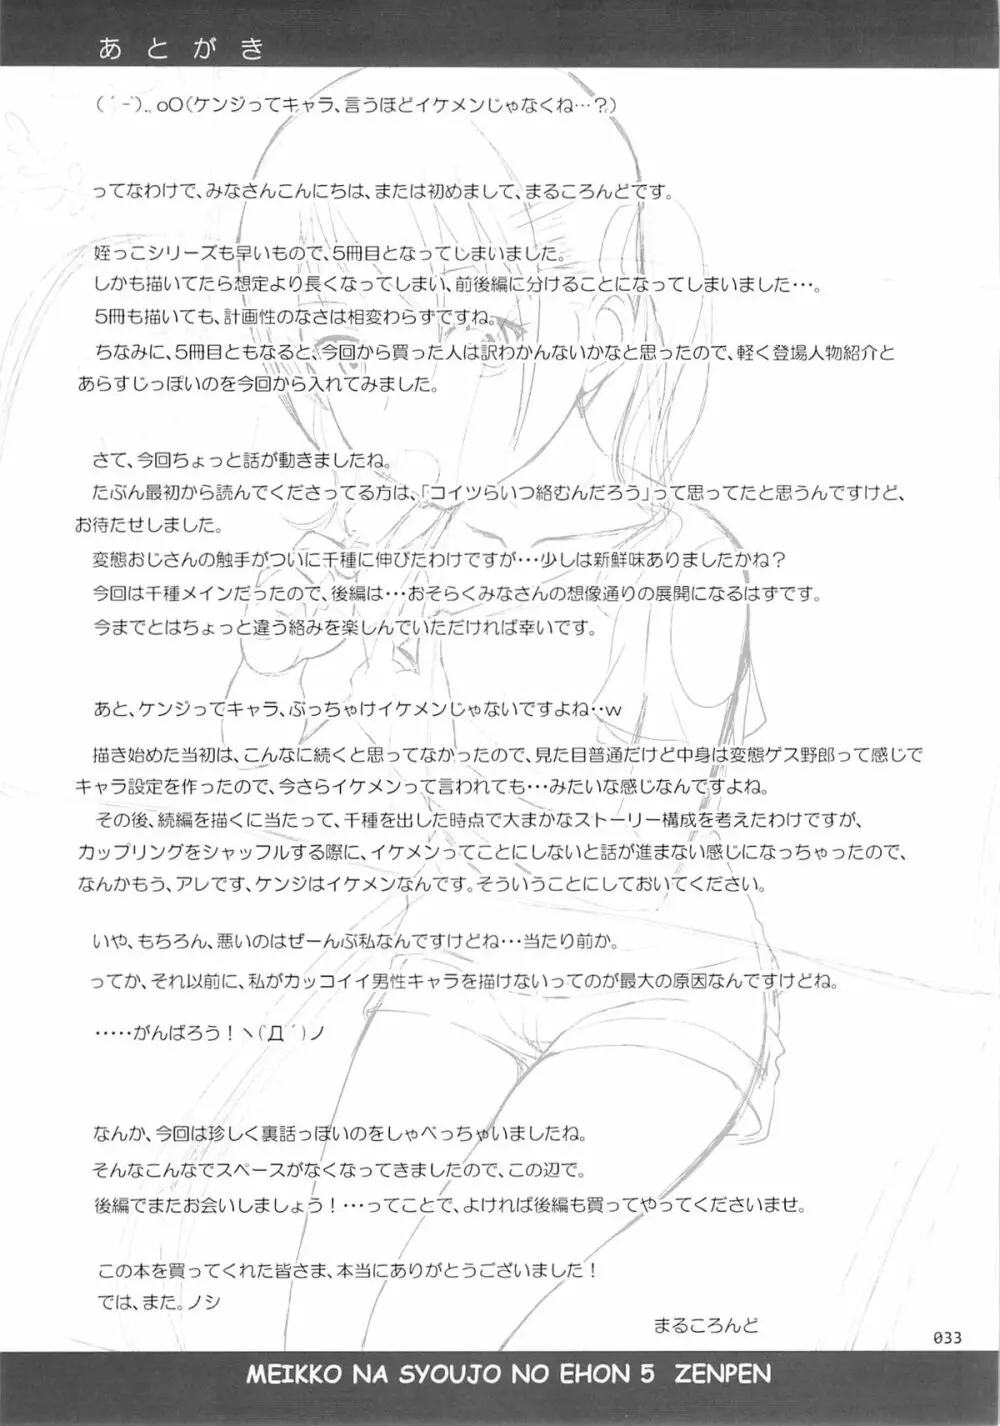 あとがき
(´-`).｡oO(ケンジってキャラ、言うほどイケメンじゃなくね…？)
ってなわけで、みなさんこんにちは、または初めまして、まるころんどです。
姪っこシリーズも早いもので、5冊目となってしまいました。
しかも描いてたら想定より長くなってしまい、前後編に分けることになってしまいました…。
5冊も描いても、計画性のなさは相変わらずですね。
ちなみに、5冊目ともなると、今回から買った人は訳わかんないかなと思ったので、軽く登場人物紹介と
あらすじっぽいのを今回から入れてみました。
さて、今回ちょっと話が動きましたね。
たぶん最初から読んでくださってる方は、「コイツらいつ絡むんだろう」って思ってたと思うんですけど、
お待たせしました。
変態おじさんの触手がついに千種に伸びたわけですが…少しは新鮮味ありましたかね？
今回は千種メインだったので、後編は…おそらくみなさんの想像通りの展開になるはずです。
今までとはちょっと違う絡みを楽しんでいただければ幸いです。
あと、ケンジってキャラ、ぶっちゃけイケメンじゃないですよね‥w
描き始めた当初は、こんなに続くと思ってなかったので、見た目普通だけど中身は変態ゲス野郎って感じで
キャラ設定を作ったので、今さらイケメンって言われても…みたいな感じなんですよね。
その後、続編を描くに当たって、千種を出した時点で大まかなストーリー構成を考えたわけですが、
カップリングをシャッフルする際に、イケメンってことにしないと話が進まない感じになっちゃったので、
なんかもう、アレです、ケンジはイケメンなんです。そういうことにしておいてください。
いや、もちろん、悪いのはぜーんぶ私なんですけどね…当たり前か。
ってか、それ以前に、私がカッコイイ男性キャラを描けないってのが最大の原因なんですけどね。
‥…がんばろう！ヽ(`Д´)ノ
なんか、今回は珍しく裏話っぽいのをしゃべっちゃいましたね。
そんなこんなでスペースがなくなってきましたので、この辺で。
後編でまたお会いしましょう！…ってことで、よければ後編も買ってやってくださいませ。
この本を買ってくれた皆さま、本当にありがとうございました！
では、また。ノシ
まるころんど
033
MEIKKO NA SYOUJO NO EHON 5 ZENPEN